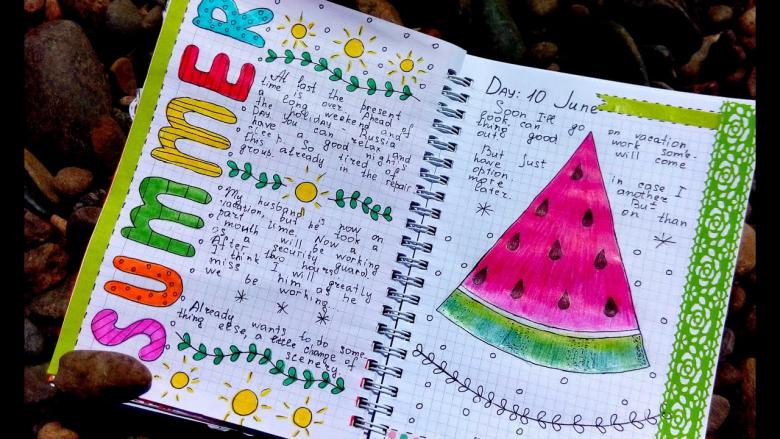 SUMMER
At last the present
time is over. Ahead of
a long weekend and
the holiday - Russia
Day. You can relax and
have a good night's
sleep. So tired of
this already in the repair
group.
My husband is now on
vacation, but he took a
part time. Now a
month will be working
as a security guard
After two hours
I think I will greatly
miss him as he
we be working...
Already wants to do some-
thing else, a little change of
scenery.
Day: 10 June
Soon I'll go on vacation
look can work some-
thing good will come
out.
But just in case I
have another
option. But
more on than
later.